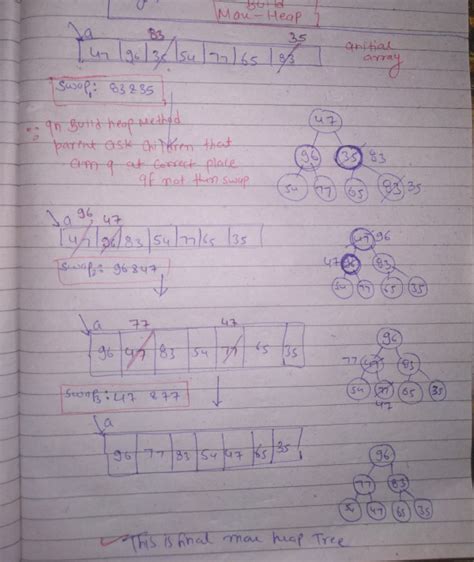 Build
Max-Heap
a 83 35
47 96 35 54 77 65 83
initial
array
Swap1: 83&35
In Build heap Method
parent ask children that
am I at correct place
If not then swap
47
96 35 83
54 77 65 83 35
a 96 47
47 96 83 54 77 65 35
Swap2: 96&47
47 96
47 96 83
54 77 65 35
a 77 47
96 47 83 54 77 65 35
Swap3: 47 &77
96
77 47 83
54 77 65 35
47
a
96 77 83 54 47 65 35
96
77 83
54 47 65 35
This is final max heap Tree